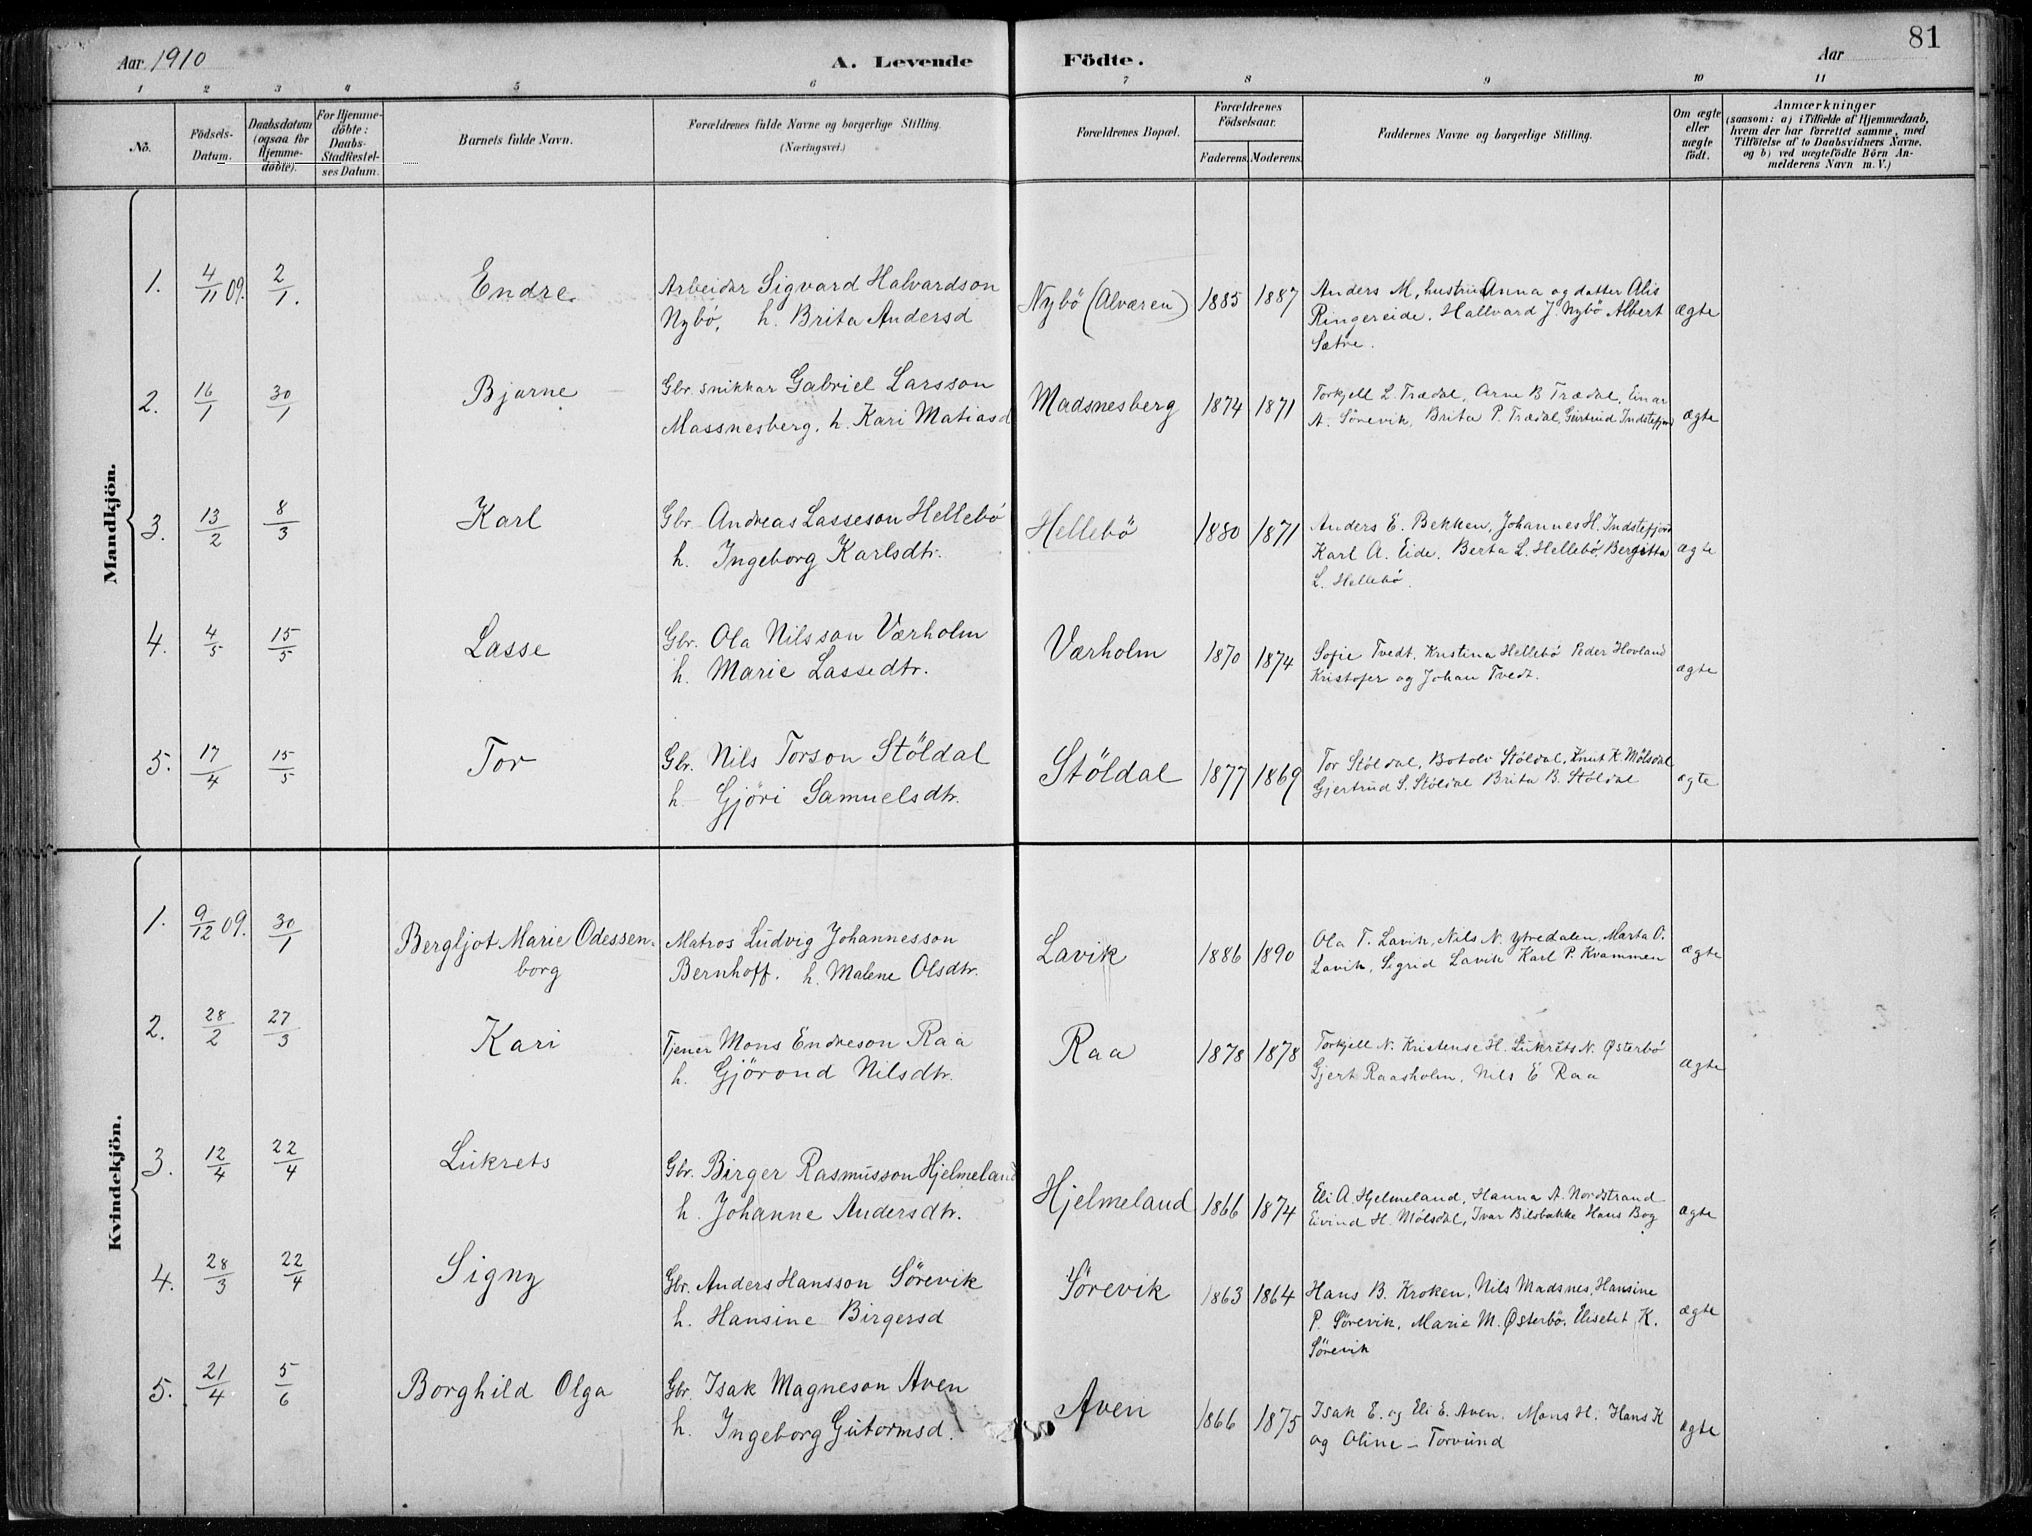 81
Aar 1910
A. Levende Födte.
Aar
1 2 3 4 5 6 7 8 9 10 11
No.
Födsels-Datum.
Daabsdatum (ogsaa for Hjemme-döbte).
For Hjemme-döbte: Daabs-Stadfæstel-ses Datum.
Barnets fulde Navn.
Forældrenes fulde Navne og borgerlige Stilling.
(Næringsvei.)
Forældrenes Bopæl.
Forældrenes Födselsaar.
Faderens. Moderens.
Faddernes Navne og borgerlige Stilling.
Om ægte eller uægte födt.
Anmærkninger
(saasom: a) i Tilfælde af Hjemmedaab,
hvem der har forrettet samme, med
Tilföielse af to Daabsvidners Navne,
og b) ved uægtefödte Börn An-
melderens Navn m. V.)
Mandkjön.
1. 4/11 09. 2/1. Endre. Arbeider Sigvard Halvardson Nybö (Alværen) 1885 1887 Anders M, hustru Anna og datter Alis
Nybö, h. Brita Andersd Ringereide. Hallvard J. Nybö Albert ægte
Sætre.
2. 16/1 30/1 Bjarne Gbr. snikkar Gabriel Larsson Madsnesberg 1874 1871 Torkjell L. Trædal, Arne B Trædal, Einar
Massnesberg. h. Kari Matiasd A. Sörevik, Brita P. Trædal, Geirtrud Indstefjord ægte
3. 13/2 8/3 Karl Gbr. Andreas Lasseson Hellebö Hellebö 1880 1871 Anders E. Bekken, Johannes H. Indstefjord
h. Ingeborg Karlsdtr. Karl A. Eide, Berta L. Hellebö, Bergitta ægte
L. Hellebö.
4. 4/5 15/5 Lasse Gbr. Ola Nilsson Værholm Værholm 1870 1874 Sofie Tvedt, Kristina Hellebö Peder Hovland
h. Marie Lassedtr. Kristofer og Johan Tvedt. ægte
5. 17/4 15/5 Tor Gbr. Nils Torson Stöldal Stöldal 1877 1869 Tor Stöldal, Botolv Stöldal, Knut K. Mölsdal
h. Gjöri Samuelsdtr. Gjertrud S. Stöldal Brita B. Stöldal ægte
Kvindekjön.
1. 9/12 09. 30/1 Bergljot Marie Odessen- Matros Ludvig Johannesson Lavik 1886 1890 Ola T. Lavik, Nils N. Ytredalen, Marta O.
borg Bernhoff. h. Malene Olsdtr. Lavik, Sigrid Lavik Karl P. Kvammen ægte
2. 28/2 27/3 Kari Tjener Mons Endreson Raa Raa 1878 1878 Torkjell N. Kristense H. Lukrets N. Østerbö
h. Gjörond Nilsdtr. Gjert Raasholm, Nils E Raa ægte
3. 12/4 22/4 Lukrets Gbr. Birger Rasmusson Hjelmeland Hjelmeland 1866 1874 Eli A. Hjelmeland, Hanna A. Nordstrand
h. Johanne Andersdtr. Eivind H. Mölsdal, Ivar Bilsbakke Hans Bog ægte
4. 28/3 22/4 Signy Gbr. Anders Hansson Sörevik Sörevik 1863 1864 Hans B. Kroken, Nils Madsnes, Hansine
h. Hansine Birgersd P. Sörevik, Marie M. Østerbö. Eliselet K. ægte
Sörevik
5. 21/4 5/6 Borghild Olga Gbr. Isak Magneson Aven Aven 1866 1875 Isak E. og Eli E. Aven. Mons H. Hans K
h. Ingeborg Gutormsd. og Oline – Torvund ægte